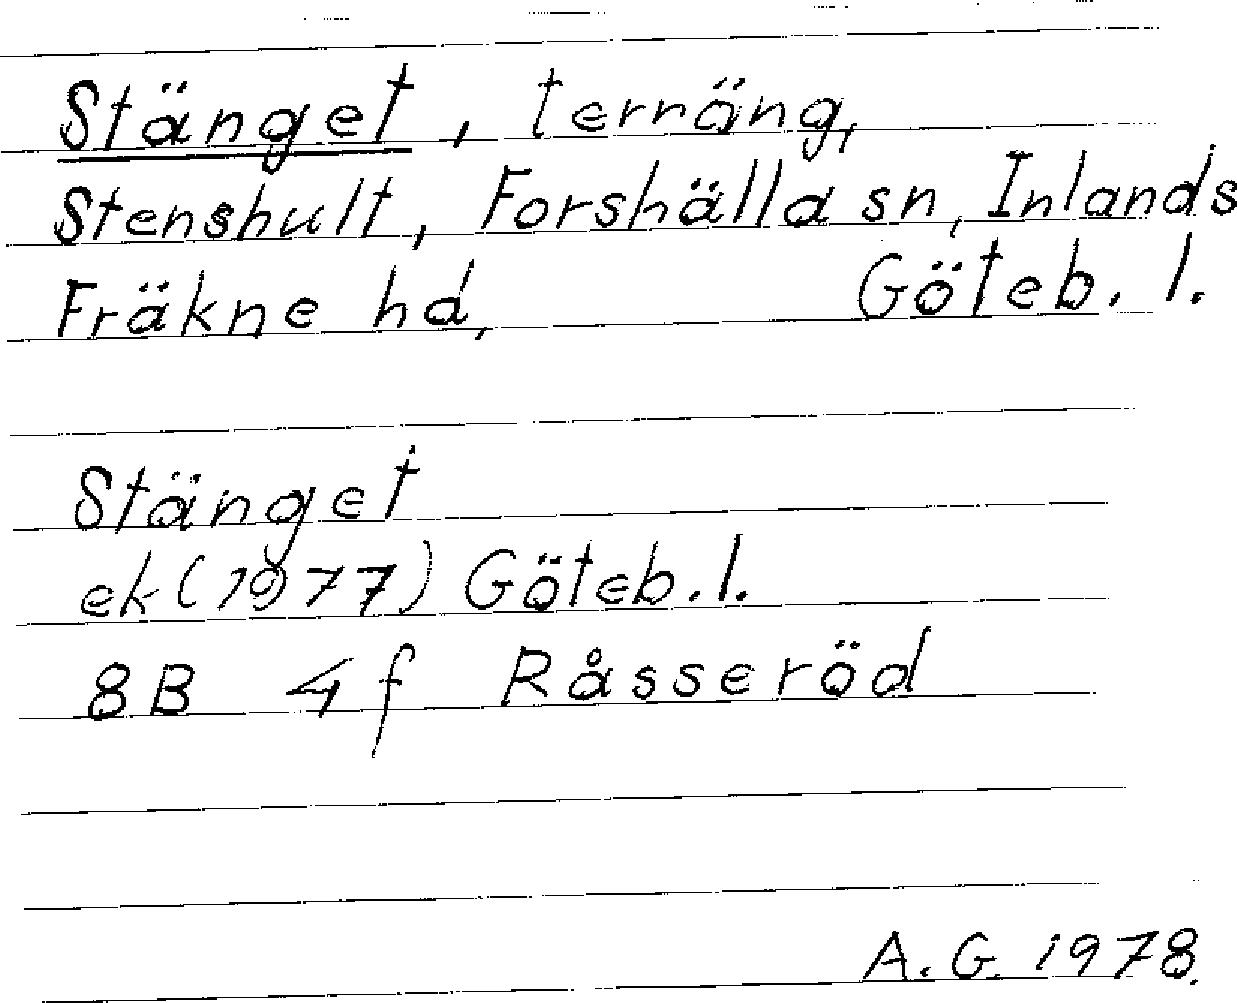 Stänget, terräng,
Stenshult, Forshälla sn, Inlands
Fräkne hd, Göteb. l.
Stänget
ek (1977) Göteb. l.
8B 4f Råsseröd
A. G. 1978.